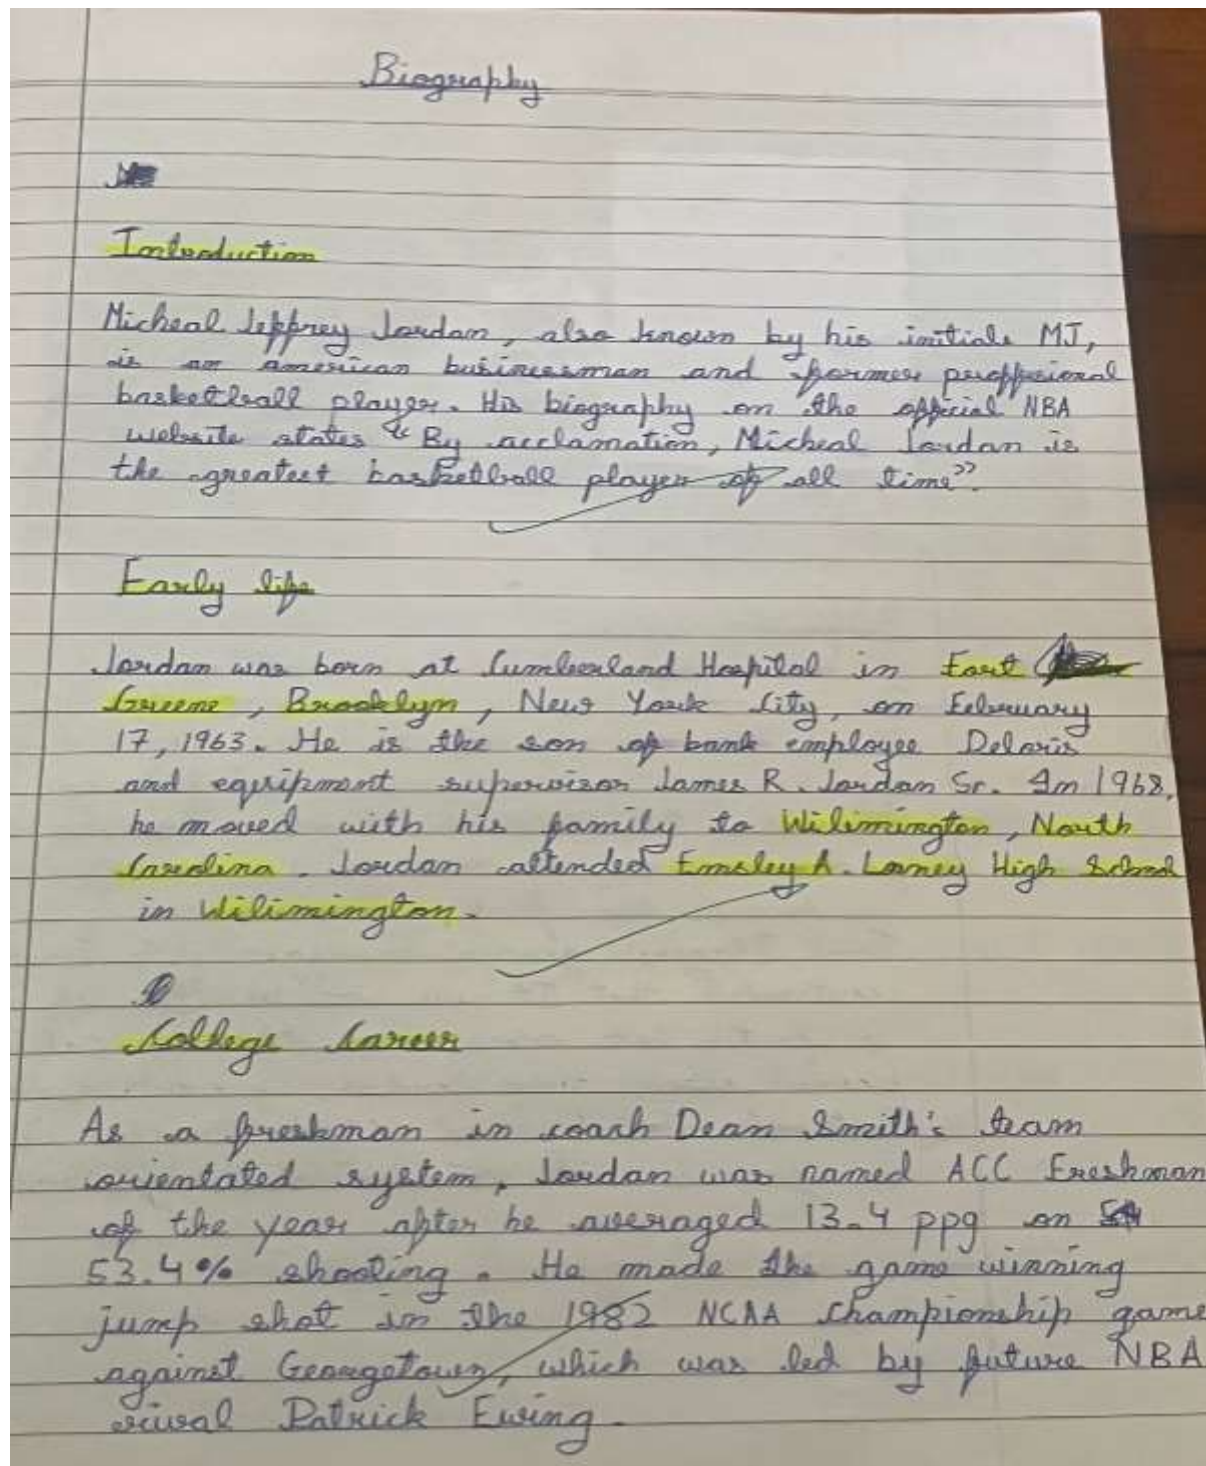 Biography
Introduction
Micheal Jeffrey Jordan, also known by his initials MJ,
is an american businessman and former proffesional
basketball player. His biography on the official NBA
website states “By acclamation, Micheal Jordan is
the greatest basketball player of all time”.
Early life
Jordan was born at Cumberland Hospital in Fort
Greene, Brooklyn, New York City, on February
17, 1963. He is the son of bank employee Deloris
and equipment supervisor James R. Jordan Sr. In 1968,
he moved with his family to Wilimington, North
Carolina. Jordan attended Emsley A. Laney High School
in Wilimington.
College Career
As a freshman in coach Dean Smith's team
orientated system, Jordan was named ACC Freshman
of the year after he averaged 13.4 ppg on
53.4% shooting. He made the game winning
jump shot in the 1982 NCAA Championship game
against Georgetown, which was led by future NBA
rival Patrick Ewing.